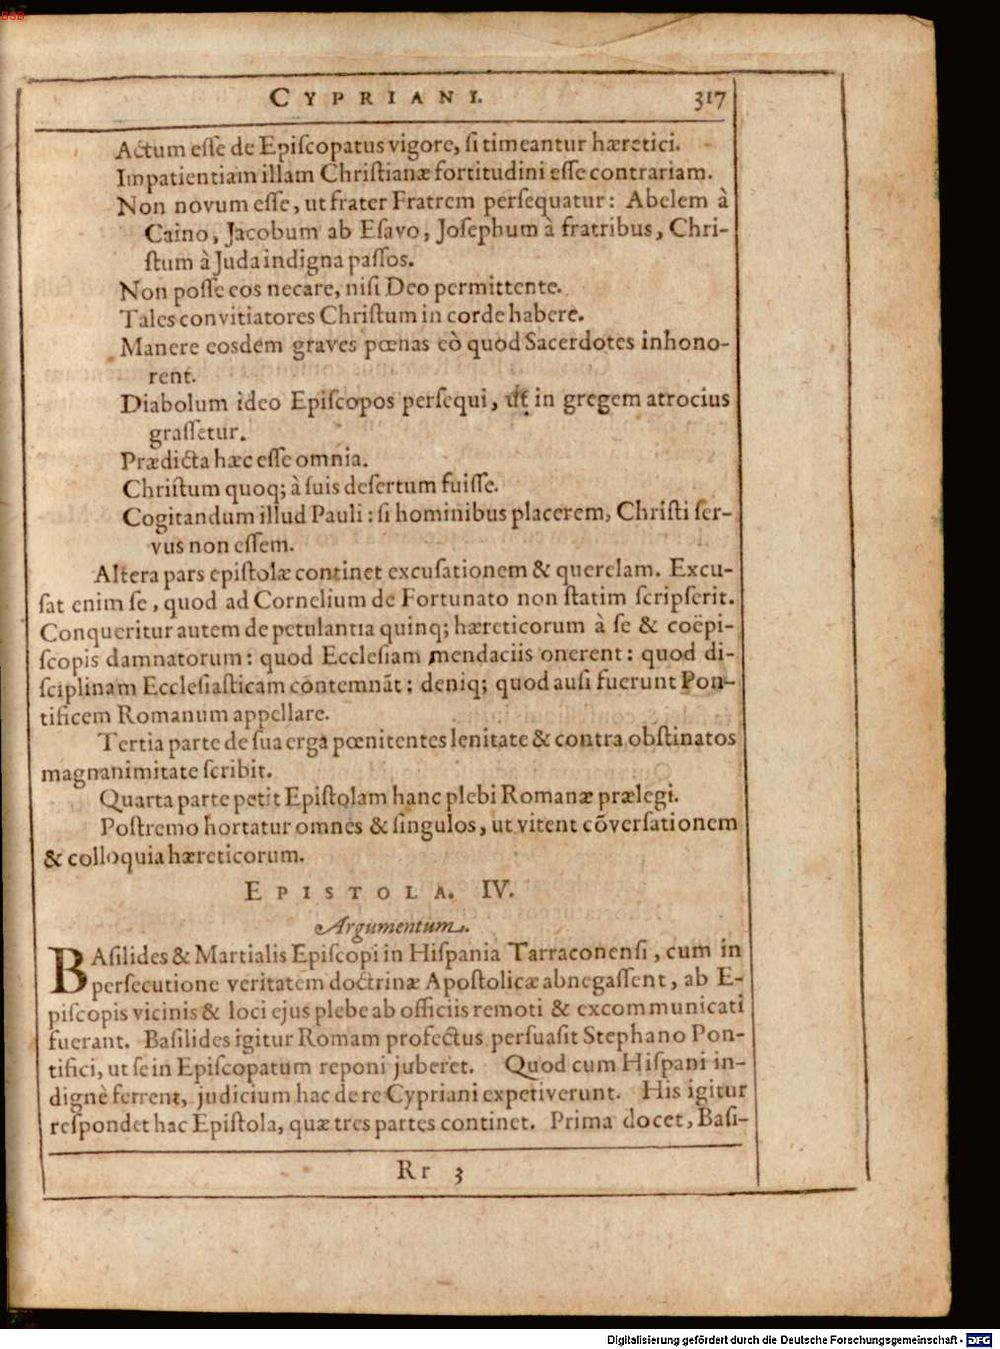 BSB
CYPRIANI. 317
Actum esſe de Epiſcopatus vigore, ſi timeantur hæretici.
Impatientiam illam Chriſtianæ fortitudini eſſe contrariam.
Non novum eſſe, ut frater Fratrem perſequatur: Abelem à
Caino, Jacobum ab Eſavo, Joſephum à fratribus, Chri-
ſtum à Juda indigna paſſos.
Non poſſe eos necare, niſi Deo permittente.
Tales convitiatores Chriſtum in corde habere.
Manere eosdem graves pœnas eò quòd Sacerdotes inhono-
rent.
Diabolum ideo Epiſcopos perſequi, ut in gregem atrocius
graſſetur.
Prædicta hæc eſſe omnia.
Chriſtum quoq; à ſuis deſertum fuiſſe.
Cogitandum illud Pauli: ſi hominibus placerem, Chriſti ſer-
vus non eſſem.
Altera pars epiſtolæ continet excuſationem & querelam. Excu-
ſat enim ſe, quod ad Cornelium de Fortunato non ſtatim ſcripſerit.
Conqueritur autem de petulantia quinq; hæreticorum à ſe & coëpi-
ſcopis damnatorum: quod Eccleſiam mendaciis onerent: quod di-
ſciplinam Eccleſiaſticam contemnãt: deniq; quod auſi fuerunt Pon-
tificem Romanum appellare.
Tertia parte de ſua erga pœnitentes lenitate & contra obſtinatos
magnanimitate ſcribit.
Quarta parte petit Epiſtolam hanc plebi Romanæ prælegi.
Poſtremo hortatur omnes & ſingulos, ut vitent cõverſationem
& colloquia hæreticorum.
EPISTOLA. IV.
Argumentum.
BAſilides & Martialis Epiſcopi in Hiſpania Tarraconenſi, cum in
perſecutione veritatem doctrinæ Apoſtolicæ abnegaſſent, ab E-
piſcopis vicinis & loci ejus plebe ab officiis remoti & excommunicati
fuerant. Baſilides igitur Romam profectus perſuaſit Stephano Pon-
tifici, ut ſe in Epiſcopatum reponi juberet. Quod cum Hiſpani in-
dignè ferrent, judicium hac de re Cypriani expetiverunt. His igitur
reſpondet hac Epiſtola, quæ tres partes continet. Prima docet, Baſi-
Rr 3
Digitalisierung gefördert durch die Deutsche Forschungsgemeinschaft - DFG